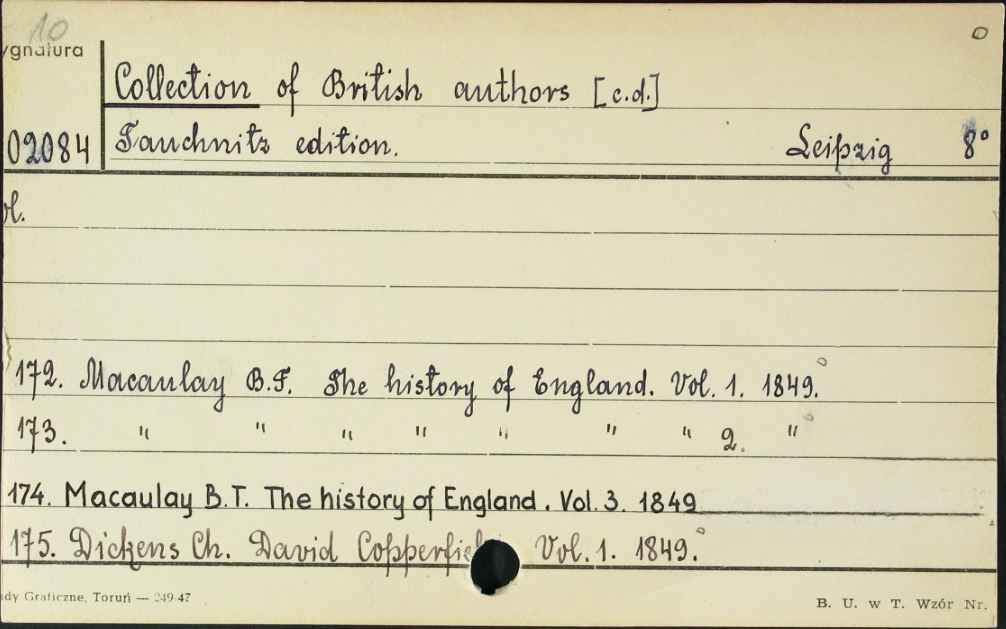 10
ygnatura
Collection of British authors [c.d.]
02084 Tauchnitz edition. Leipzig 8°
ol.
172. Macaulay B.T. The history of England. Vol. 1. 1849.
173. " " " " " " " 2. "
174. Macaulay B.T. The history of England. Vol. 3. 1849
175. Dickens Ch. David Copperfiel Vol. 1. 1849.
ady Graficzne, Toruń — 249 47
B. U. w T. Wzór Nr.